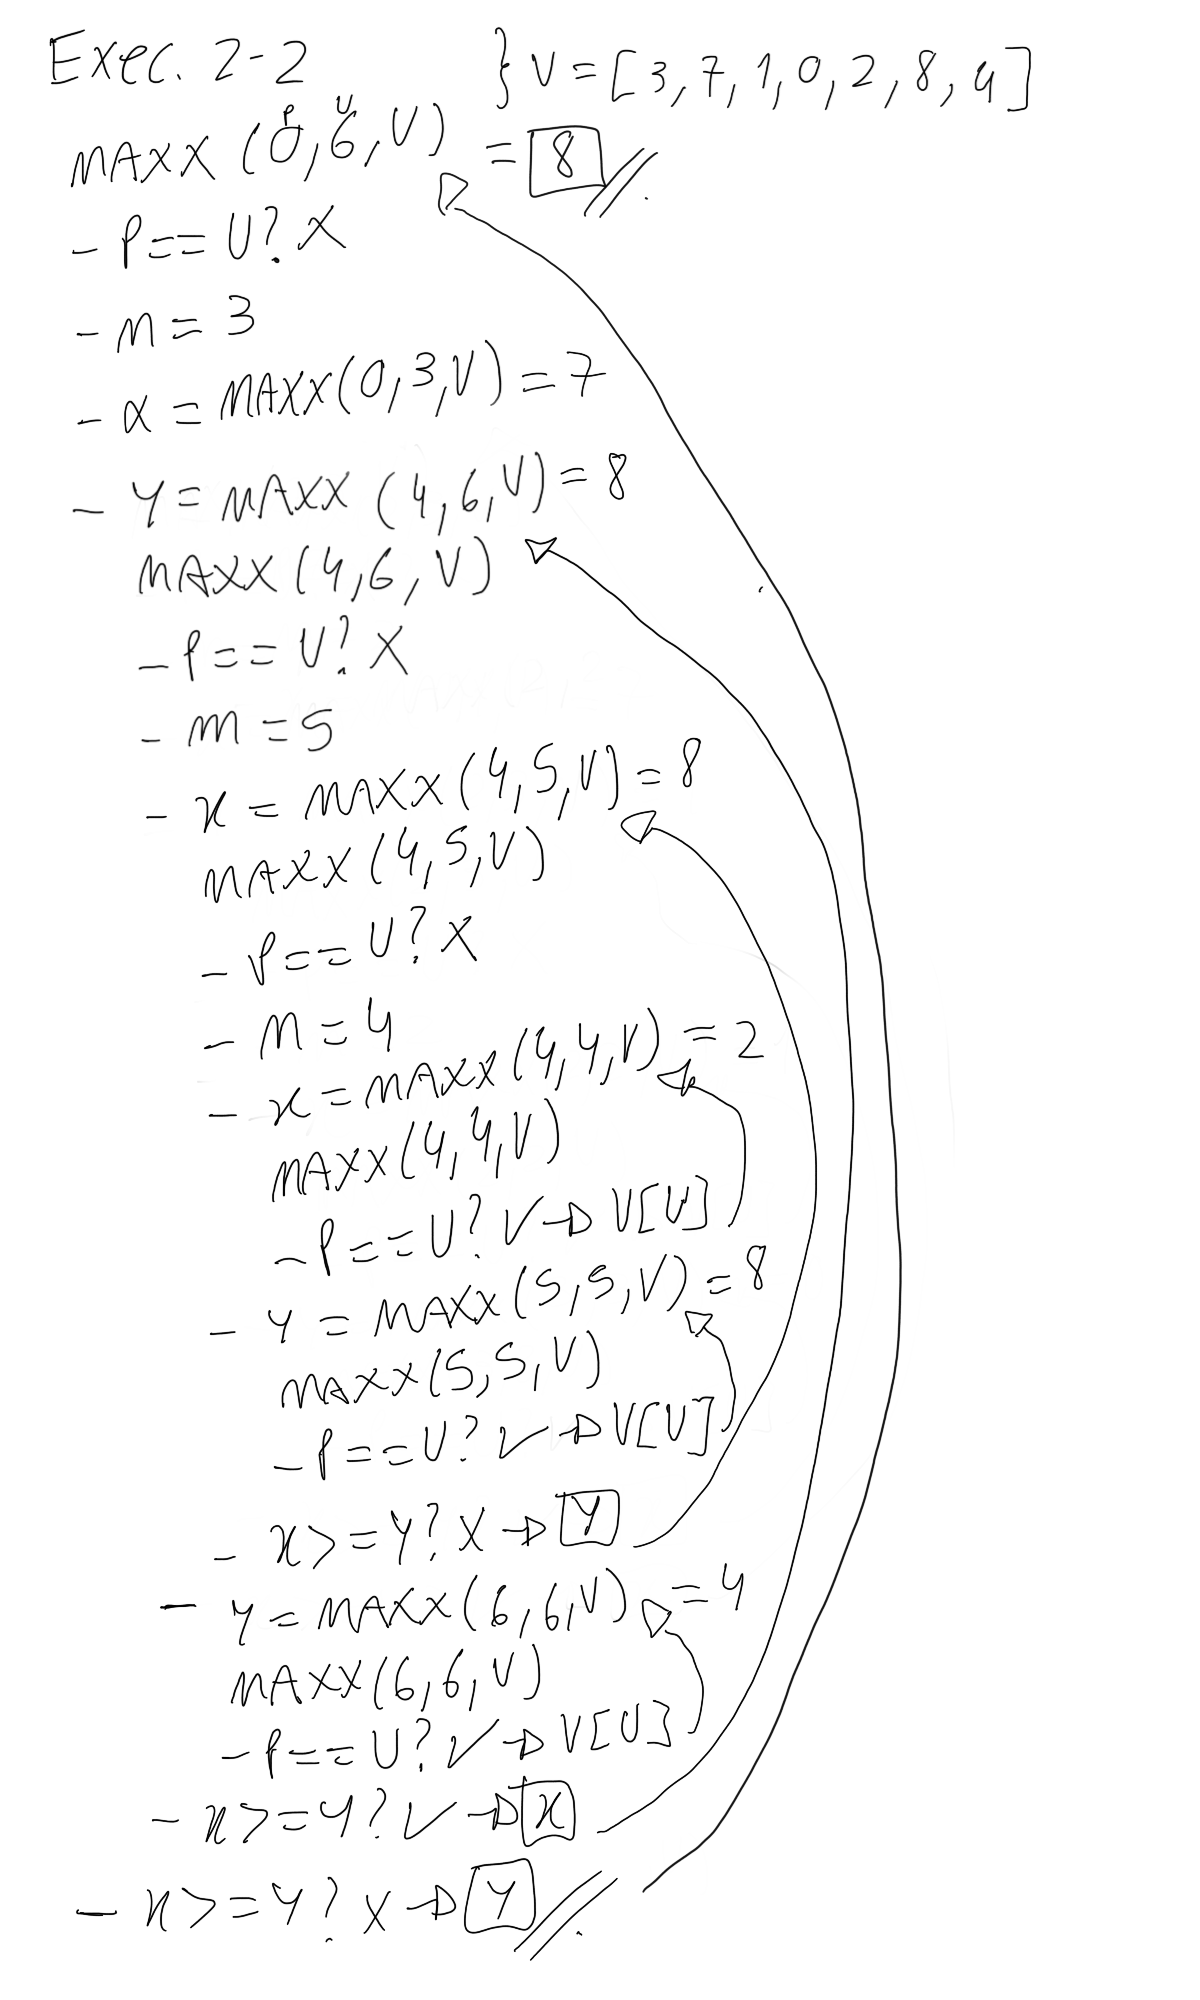 Exec. 2-2 } V = [3, 7, 1, 0, 2, 8, 4]
P U
MAXX (0, 6, V) = 8 //.
- P == U? X
- m = 3
- x = MAXX(0, 3, V) = 7
- Y = MAXX (4, 6, V) = 8
MAXX (4, 6, V)
- P == U? X
- m = 5
- x = MAXX (4, 5, V) = 8
MAXX (4, 5, V)
- P == U? X
- m = 4
- x = MAXX (4, 4, V) = 2
MAXX (4, 4, V)
- P == U? ✓ → V[U]
- Y = MAXX (5, 5, V) = 8
MAXX (5, 5, V)
- P == U? ✓ → V[U]
- x >= Y? X → Y
- Y = MAXX (6, 6, V) = 4
MAXX (6, 6, V)
- P == U? ✓ → V[U]
- x >= Y? ✓ → x
- x >= Y? X → Y //.